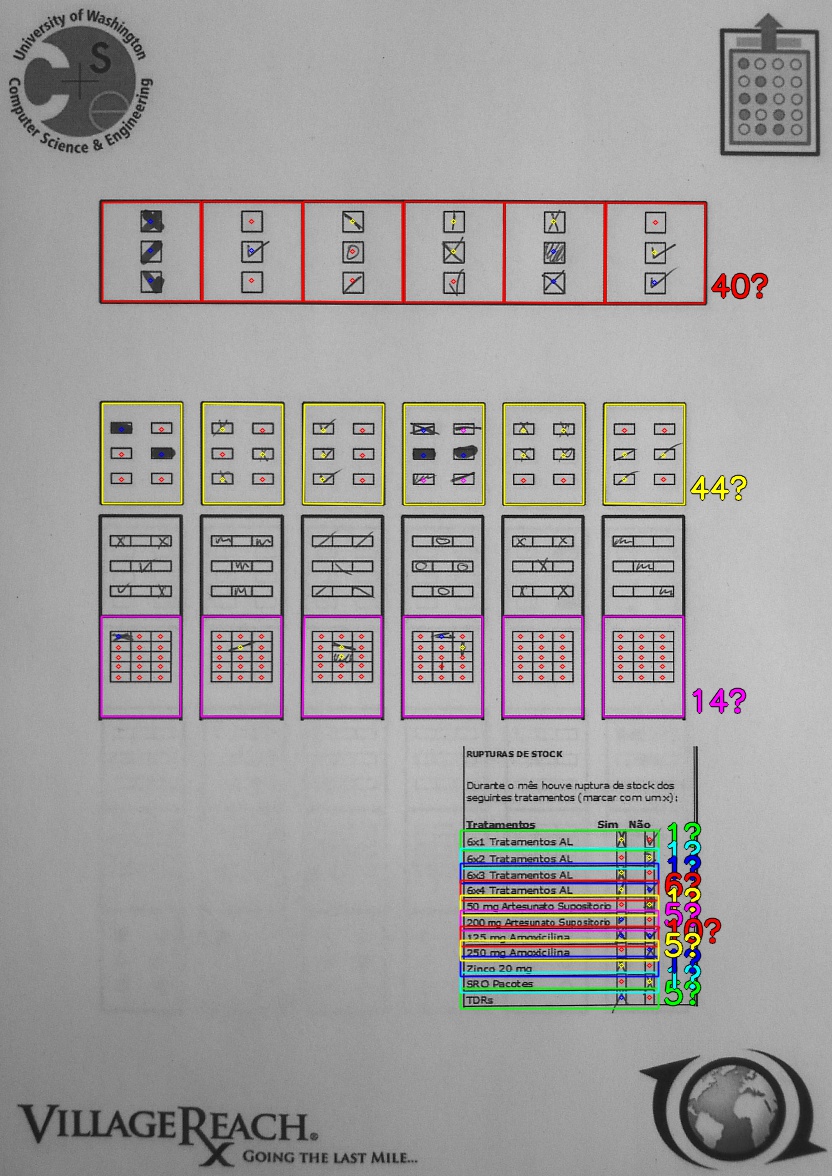 University of Washington
Computer Science & Engineering
CSe
40?
44?
14?
RUPTURAS DE STOCK
Durante o mês houve ruptura de stock dos
seguintes tratamentos (marcar com um x):
Tratamentos Sim Não
6x1 Tratamentos AL 1?
6x2 Tratamentos AL 1?
6x3 Tratamentos AL 1?
6x4 Tratamentos AL 6?
50 mg Artesunato Supositorio 1?
200 mg Artesunato Supositorio 5?
125 mg Amoxicilina 10?
250 mg Amoxicilina 5?
Zinco 20 mg 1?
SRO Pacotes 1?
TDRs 5?
VILLAGEREACH®
Rx GOING THE LAST MILE...